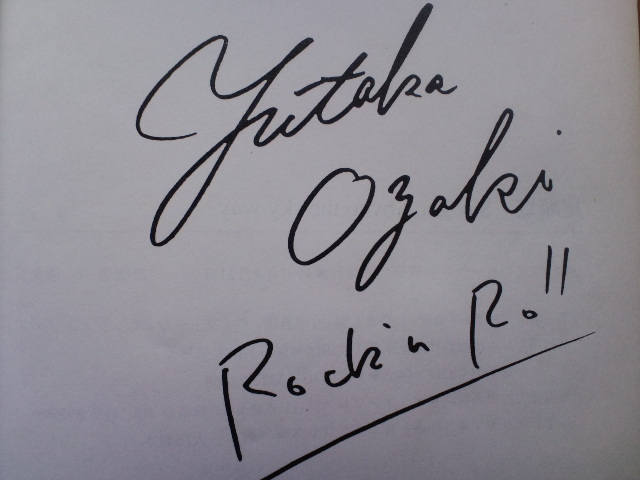 Yutaka
Ozaki
Rock'n Ro!!